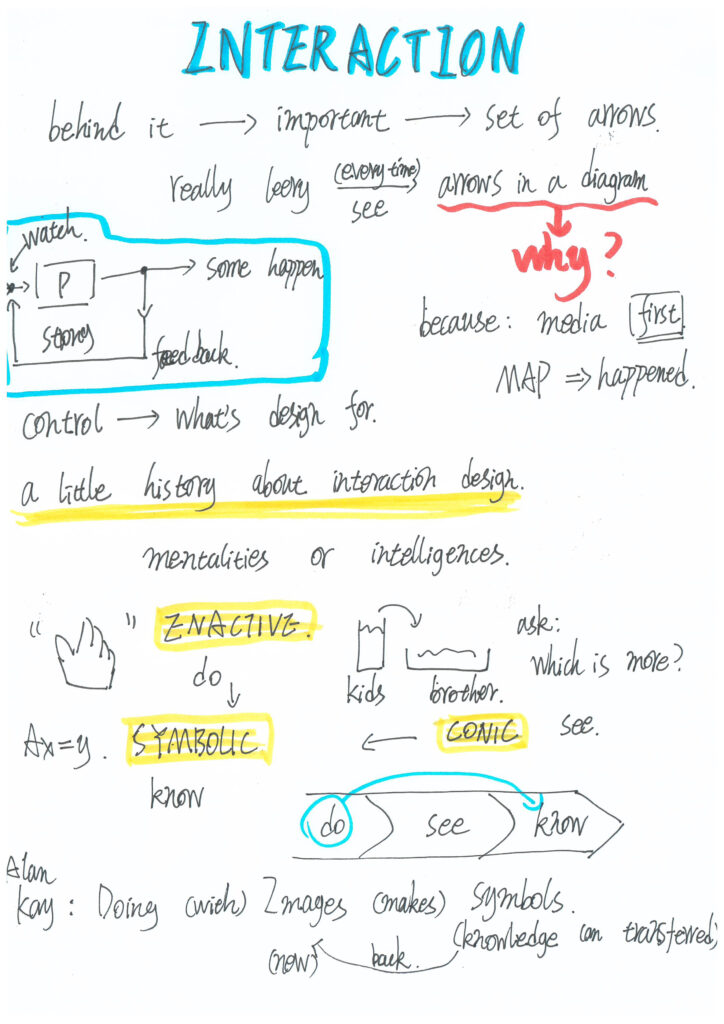 INTERACTION
behind it → important → set of arrows.
really leery (every time) see arrows in a diagram
why?
watch.
P → some happen
story feedback.
because: media first
MAP ⇒ happened.
control → what's design for.
a little history about interaction design.
mentalities or intelligences.
" " ENACTIVE.
do
kids brother.
ask:
which is more?
Ax=y. SYMBOLIC ← CONIC see.
know
do see know
Alan
Kay: Doing (with) Images (makes) symbols.
(knowledge can transferred)
(now) back.